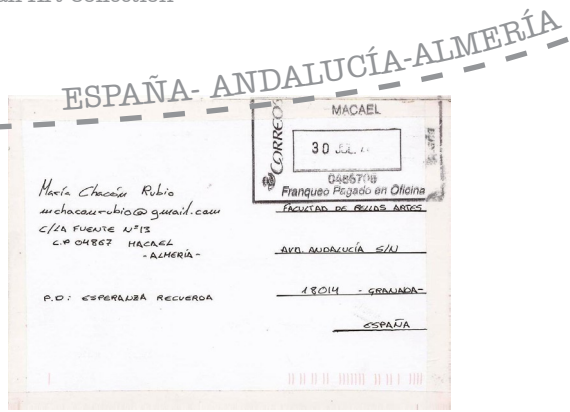 ESPAÑA- ANDALUCÍA-ALMERÍA
CORREOS
MACAEL
30 JUL.
Franqueo Pagado en Oficina
María Chacón Rubio
mchaconrubio@gmail.com
C/LA FUENTE Nº13
C.P 04867 MACAEL
-ALMERÍA-
P.D: ESPERANZA RECUERDA
FACULTAD DE BELLAS ARTES
AVD. ANDALUCÍA S/N
18014 - GRANADA-
ESPAÑA